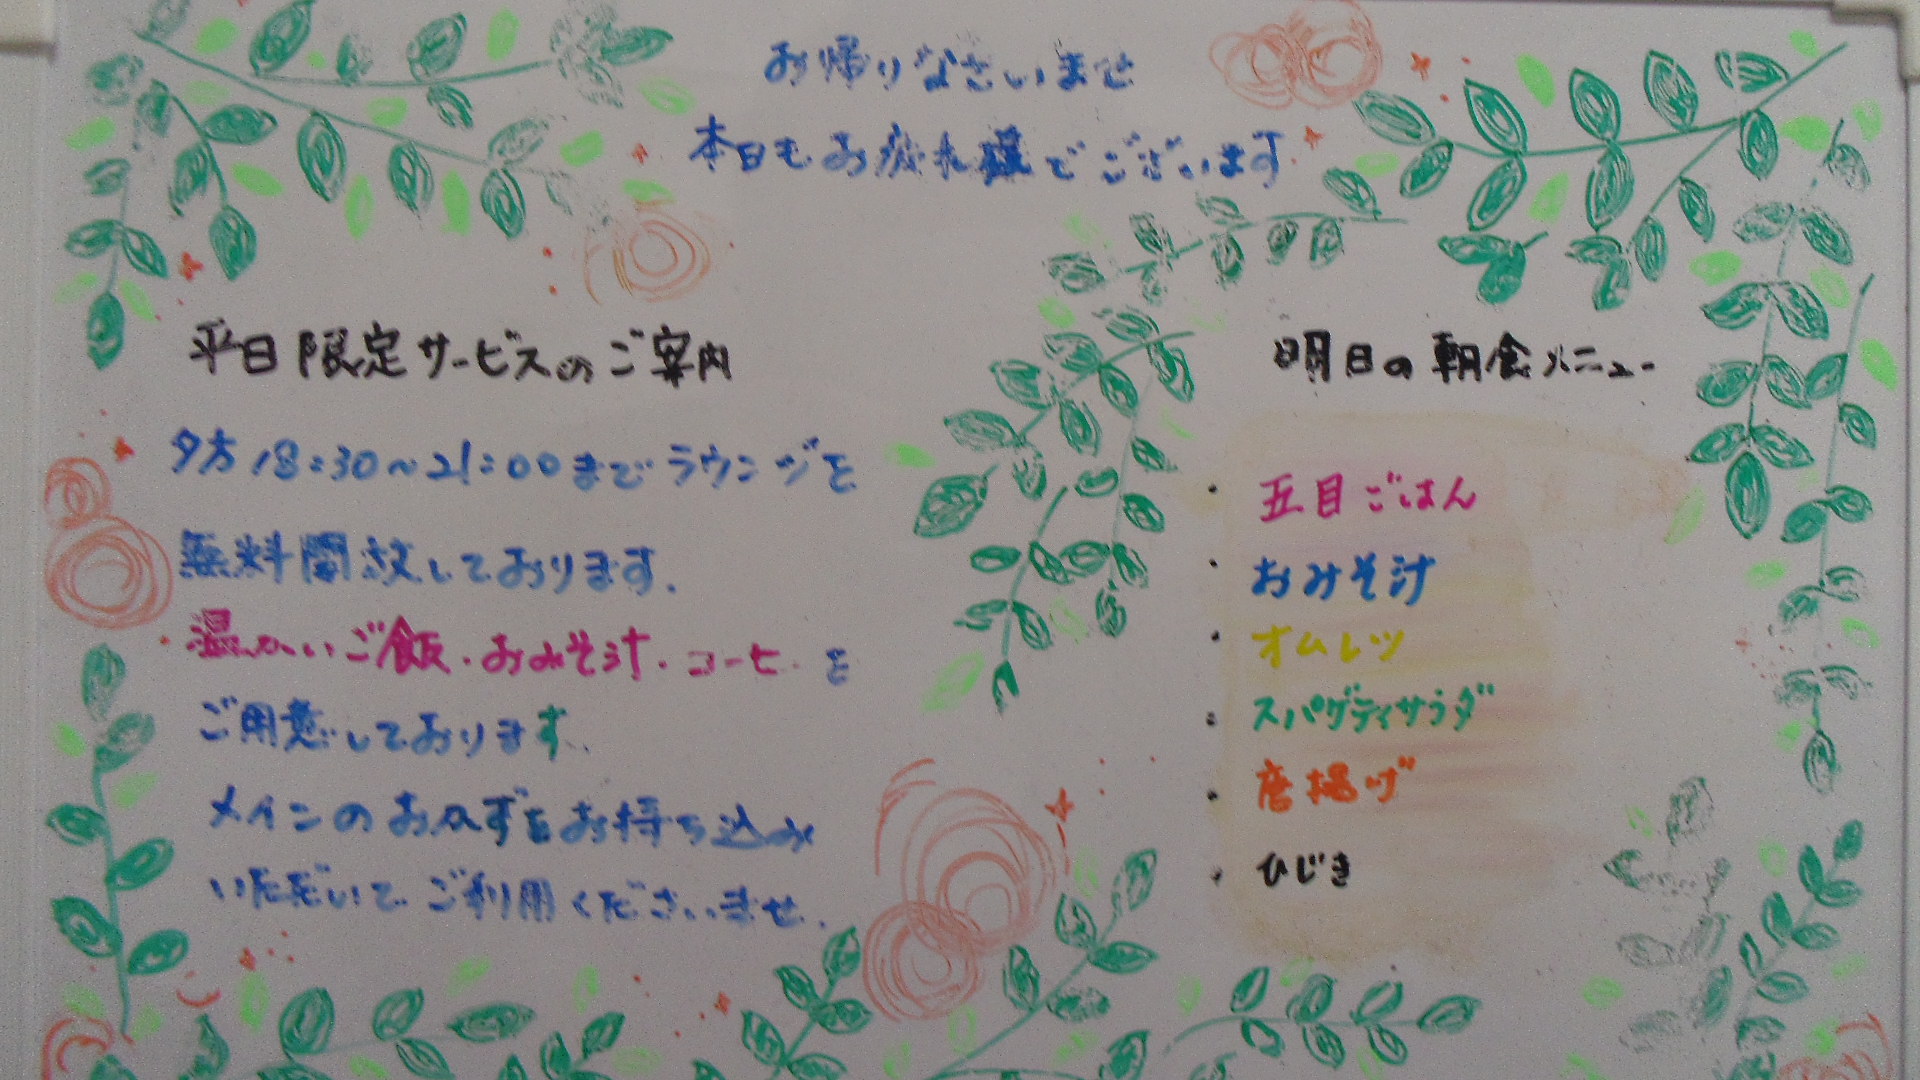 お帰りなさいませ
本日もお疲れ様でございます.
平日限定サービスのご案内
夕方18:30〜21:00までラウンジを
無料開放しております.
温かいご飯・おみそ汁・コーヒーを
ご用意しております.
メインのおかずをお持ち込み
いただいてご利用くださいませ.
明日の朝食メニュー
・五目ごはん
・おみそ汁
・オムレツ
・スパゲティサラダ
・唐揚げ
・ひじき